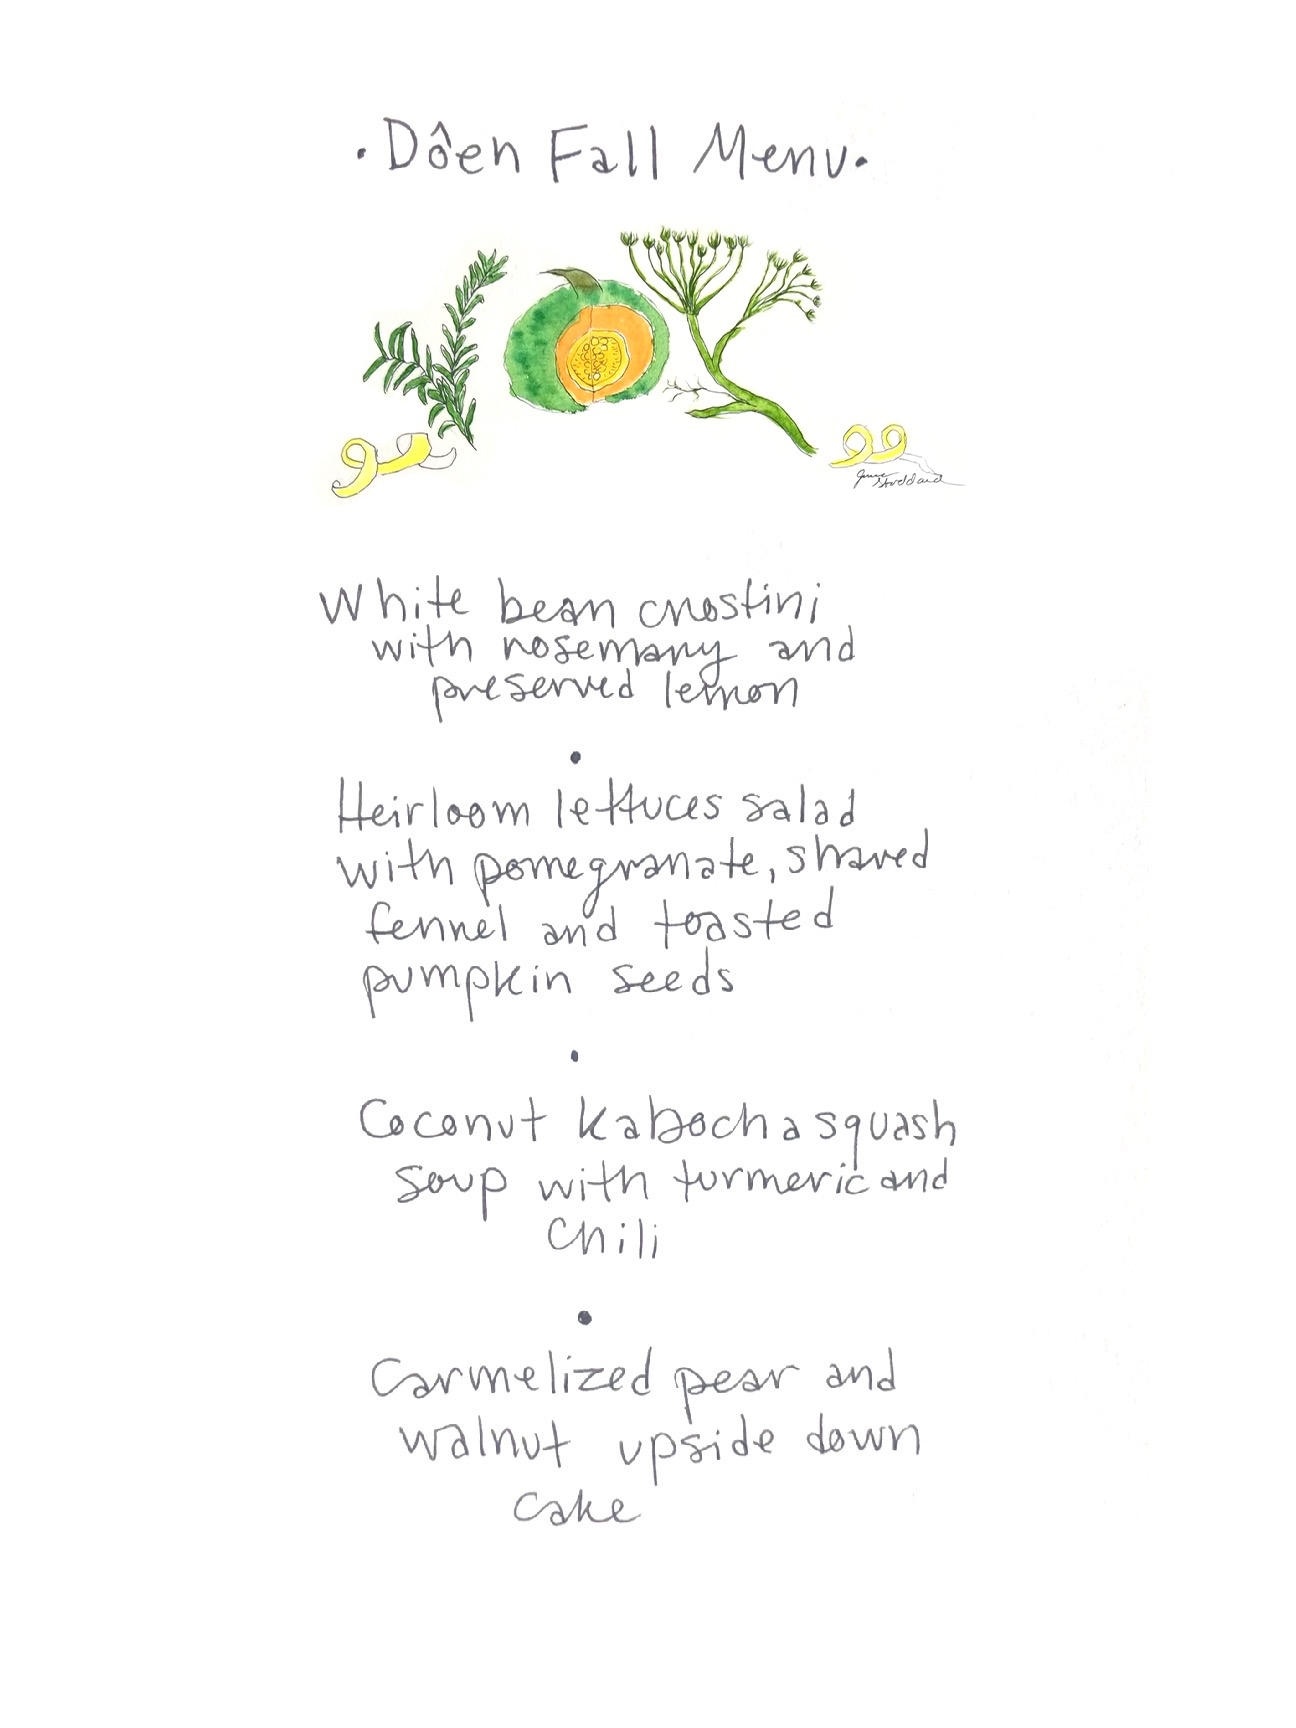 · Dôen Fall Menu ·
White bean crostini
with rosemary and
preserved lemon
•
Heirloom lettuces salad
with pomegranate, shaved
fennel and toasted
pumpkin seeds
•
Coconut kabocha squash
soup with turmeric and
chili
•
Carmelized pear and
walnut upside down
cake